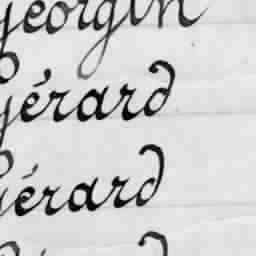 Georgin
Gérard
Gérard